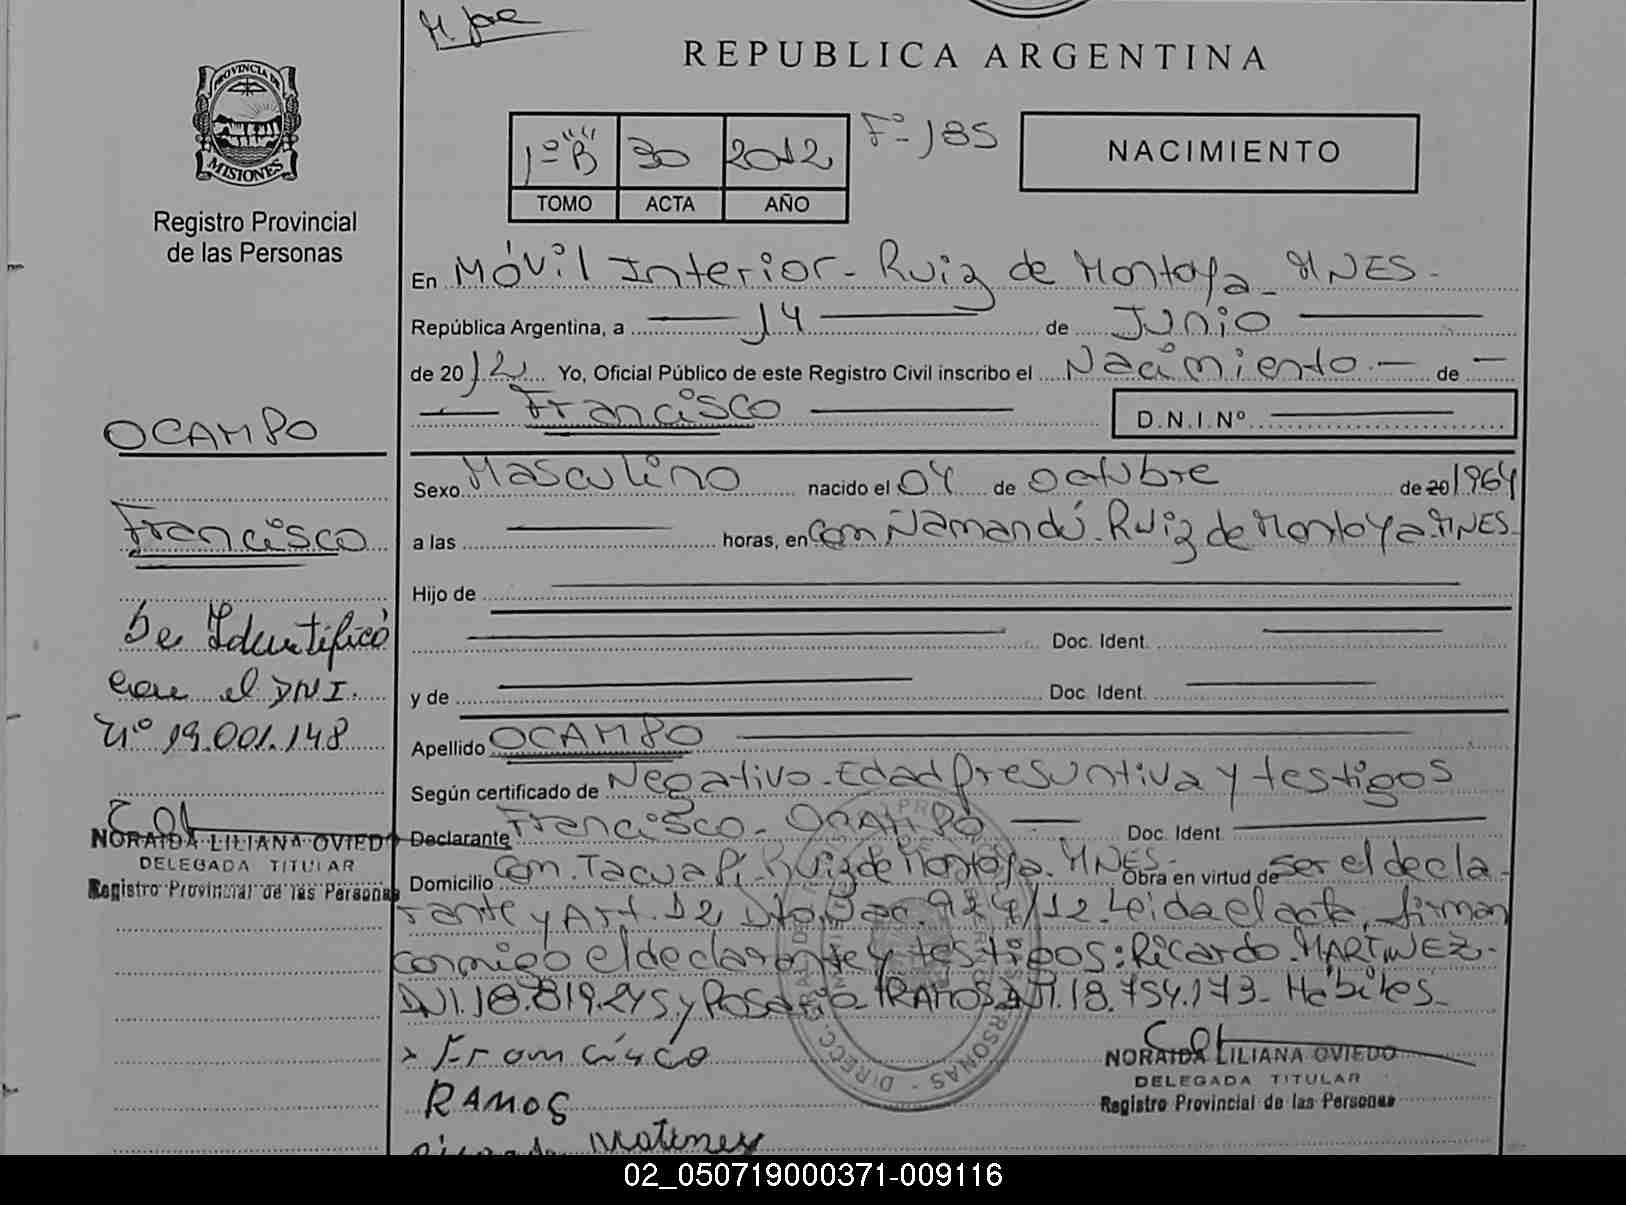 REPUBLICA ARGENTINA
PROVINCIA DE
MISIONES
Registro Provincial
de las Personas
1º "B" 30 2012 Fº 185
TOMO ACTA AÑO
NACIMIENTO
En Móvil Interior - Ruiz de Montoya - MNES -
República Argentina, a 14 de Junio
de 2012 Yo, Oficial Público de este Registro Civil inscribo el Nacimiento - de -
Francisco D.N.I. Nº
Sexo Masculino nacido el 04 de Octubre de 20 1964
a las horas, en Com Ñamandú - Ruiz de Montoya - MNES -
Hijo de
Doc. Ident.
y de Doc. Ident.
Apellido OCAMPO
Según certificado de Negativo - Edad Presuntiva y testigos
Declarante Francisco - OCAMPO Doc. Ident.
Domicilio Com. Tacuapí - Ruiz de Montoya - MNES - Obra en virtud de ser el decla-
rante y Art. 12 Dto. 924/12 - Leida el acta, firman
conmigo el declarante y testigos: Ricardo MARTINEZ -
DNI. 18.819.245 y Rosario RAMOS DNI. 18.754.173 - Hábiles -
Francisco
RAMOS
NORAIDA LILIANA OVIEDO
DELEGADA TITULAR
Registro Provincial de las Personas
OCAMPO
Francisco
Se Identificó
con el DNI.
Nº 19.001.148
NORAIDA LILIANA OVIEDO
DELEGADA TITULAR
Registro Provincial de las Personas
02_050719000371-009116